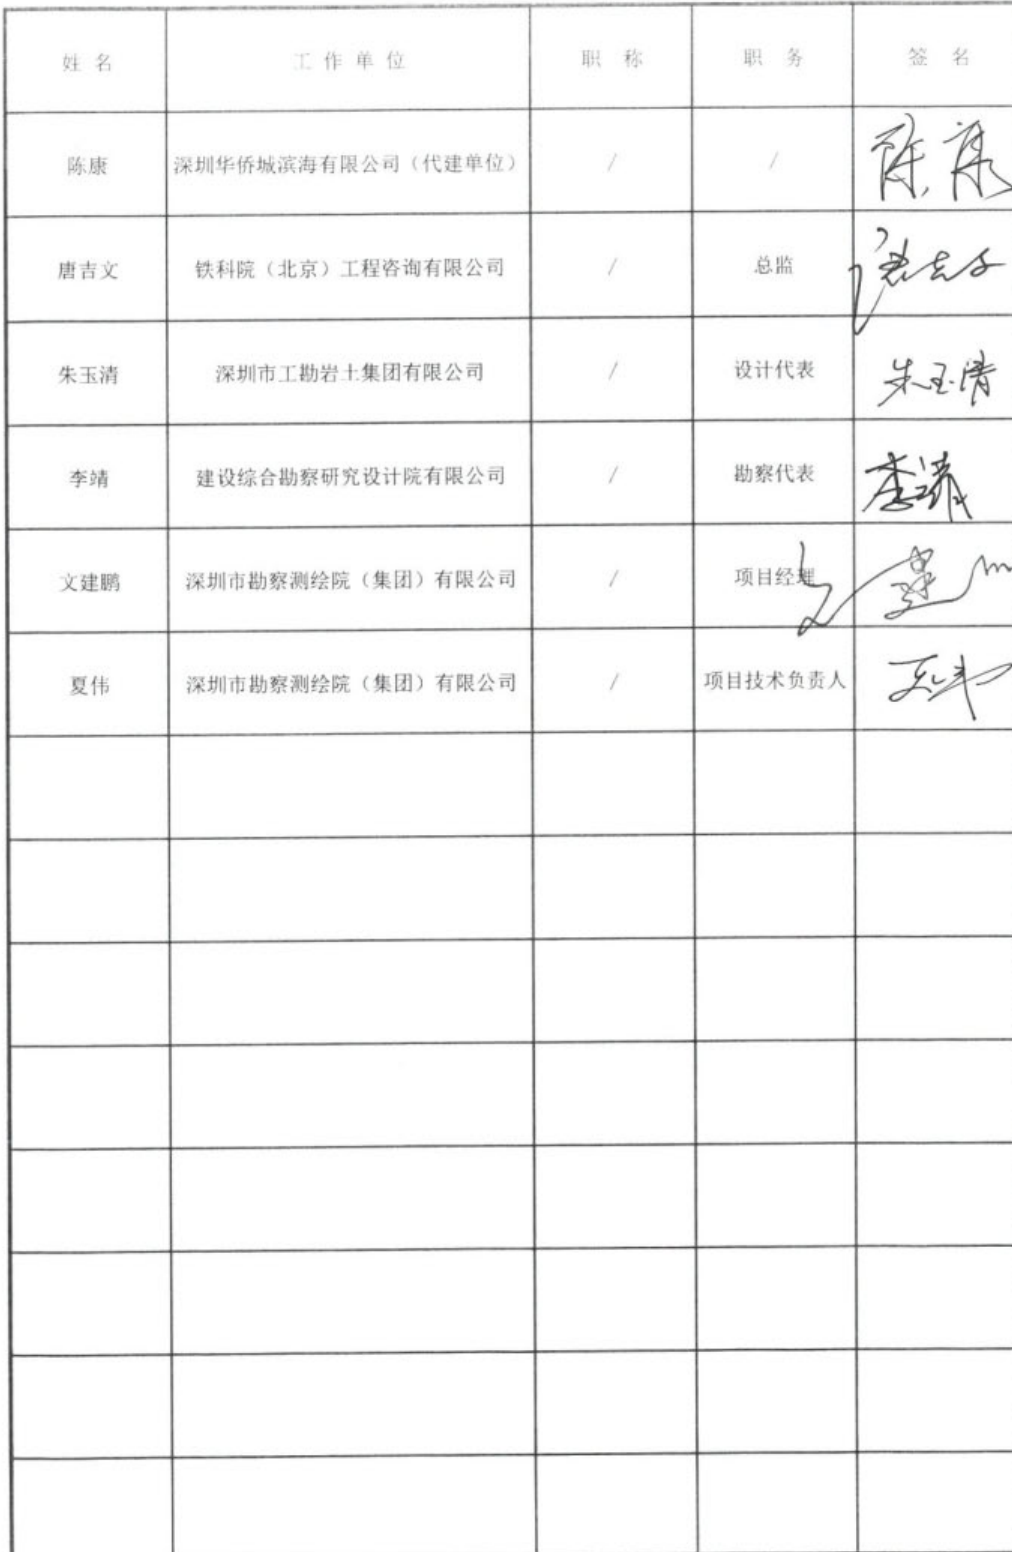 姓名 工作单位 职称 职务 签名
陈康 深圳华侨城滨海有限公司（代建单位） / / 陈康
唐吉文 铁科院（北京）工程咨询有限公司 / 总监
朱玉清 深圳市工勘岩土集团有限公司 / 设计代表 朱玉清
李靖 建设综合勘察研究设计院有限公司 / 勘察代表 李靖
文建鹏 深圳市勘察测绘院（集团）有限公司 / 项目经理
夏伟 深圳市勘察测绘院（集团）有限公司 / 项目技术负责人 夏伟